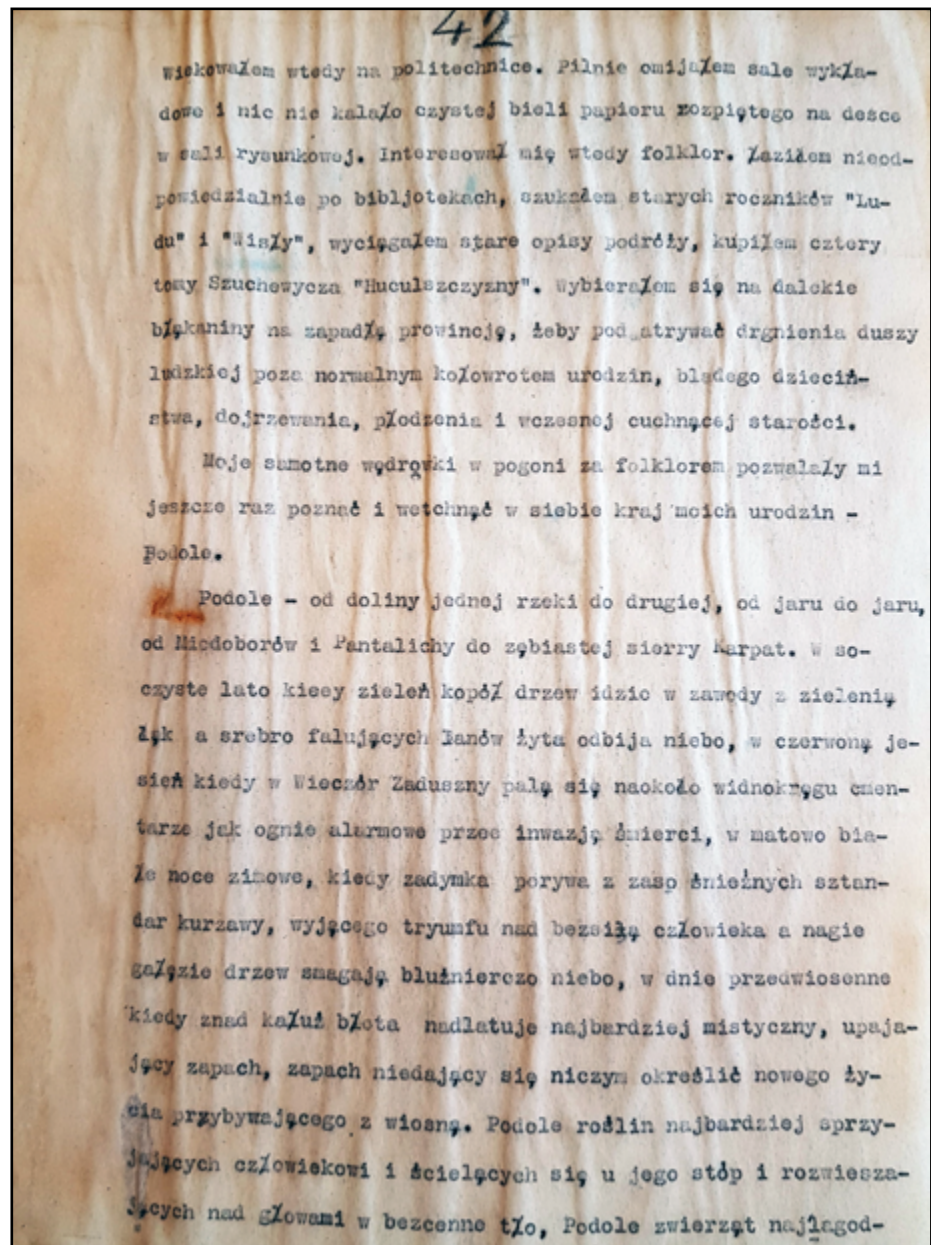 42
wiekowałem wtedy na politechnice. Pilnie omijałem sale wykła-
dowe i nic nie kalało czystej bieli papieru rozpiętego na desce
w sali rysunkowej. Interesował mię wtedy folklor. Łaziłem nieod-
powiedzialnie po bibljotekach, szukałem starych roczników "Lu-
du" i "Wisły", wyciągałem stare opisy podróży, kupiłem cztery
tomy Szuchewycza "Huculszczyzny". Wybierałem się na dalekie
błąkaniny na zapadłą prowincję, żeby pod atrywać drgnienia duszy
ludzkiej poza normalnym kołowrotem urodzin, bladego dzieciń-
stwa, dojrzewania, płodzenia i wczesnej cuchnącej starości.
Moje samotne wędrówki w pogoni za folklorem pozwalały mi
jeszcze raz poznać i wetchnąć w siebie kraj moich urodzin -
Podole.
Podole - od doliny jednej rzeki do drugiej, od jaru do jaru,
od Miodoborów i Pantalichy do zębiastej sierry Karpat. W so-
czyste lato kiecy zieleń kopół drzew idzie w zawody z zielenią
łąk a srebro falujących łanów żyta odbija niebo, w czerwoną je-
sień kiedy w Wieczór Zaduszny palą się naokoło widnokręgu cmen-
tarze jak ognie alarmowe przec inwazją śmierci, w matowo bia-
łe noce zimowe, kiedy zadymka porywa z zasp śnieżnych sztan-
dar kurzawy, wyjącego tryumfu nad bezsiłą człowieka a nagie
gałęzie drzew smagają bluźnierczo niebo, w dnie przedwiosenne
kiedy znad kałuż błota nadlatuje najbardziej mistyczny, upaja-
jący zapach, zapach niedający się niczym określić nowego ży-
cia przybywającego z wiosną. Podole roślin najbardziej sprzy-
jających człowiekowi i ścielących się u jego stóp i rozwiesza-
jących nad głowami w bezcenne tło, Podole zwierząt najłagod-